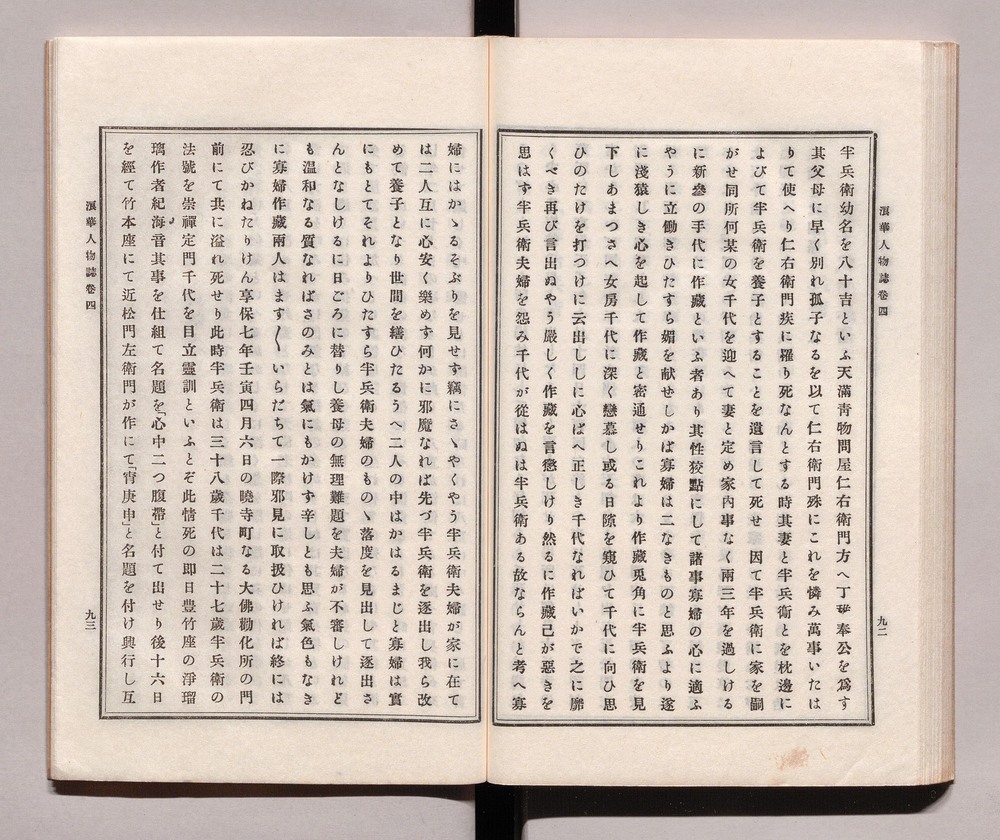 半兵衛幼名を八十吉といふ天滿靑物問屋仁右衛門方へ丁稚奉公を爲す
其父母に早く別れ孤子なるを以て仁右衛門殊にこれを憐み萬事いたは
りて使へり仁右衛門疾に罹り死なんとする時其妻と半兵衛とを枕邊に
よびて半兵衛を養子とすることを遺言して死せ 因て半兵衛に家を嗣
がせ同所何某の女千代を迎へて妻と定め家內事なく兩三年を過しける
に新參の手代に作藏といふ者あり其性狡黠にして諸事寡婦の心に適ふ
やうに立働きひたすら媚を献せしかば寡婦は二なきものと思ふより遂
に淺猿しき心を起して作藏と密通せりこれより作藏兎角に半兵衛を見
下しあまつさへ女房千代に深く戀慕し或る日隙を窺ひて千代に向ひ思
ひのたけを打つけに云出ししに心ばへ正しき千代なればいかで之に靡
くべき再び言出ぬやう嚴しく作藏を言懲しけり然るに作藏己が惡きを
思はず半兵衛夫婦を怨み千代が從はぬは半兵衛ある故ならんと考へ寡
浪華人物誌卷四
九二
婦にはかゝるそぶりを見せず竊にさゝやくやう半兵衛夫婦が家に在て
は二人互に心安く樂めず何かに邪魔なれば先づ半兵衛を逐出し我ら改
めて養子となり世間を繕ひたるうへ二人の中はかはるまじと寡婦は實
にもとてそれよりひたすら半兵衛夫婦のものゝ落度を見出して逐出さ
んとなしけるに日ごろに替りし養母の無理難題を夫婦が不審しけれど
も温和なる質なればさのみとは氣にもかけず辛しとも思ふ氣色もなき
に寡婦作藏兩人はます〱いらだちて一際邪見に取扱ひければ終には
忍びかねたりけん享保七年壬寅四月六日の曉寺町なる大佛勸化所の門
前にて共に溢れ死せり此時半兵衛は三十八歲千代は二十七歲半兵衛の
法號を崇禪定門千代を目立靈訓といふとぞ此情死の即日豊竹座の淨瑠
璃作者紀海音其事を仕組て名題を「心中二つ腹帶」と付て出せり後十六日
を經て竹本座にて近松門左衛門が作にて「宵庚申」と名題を付け興行し互
浪華人物誌卷四
九三